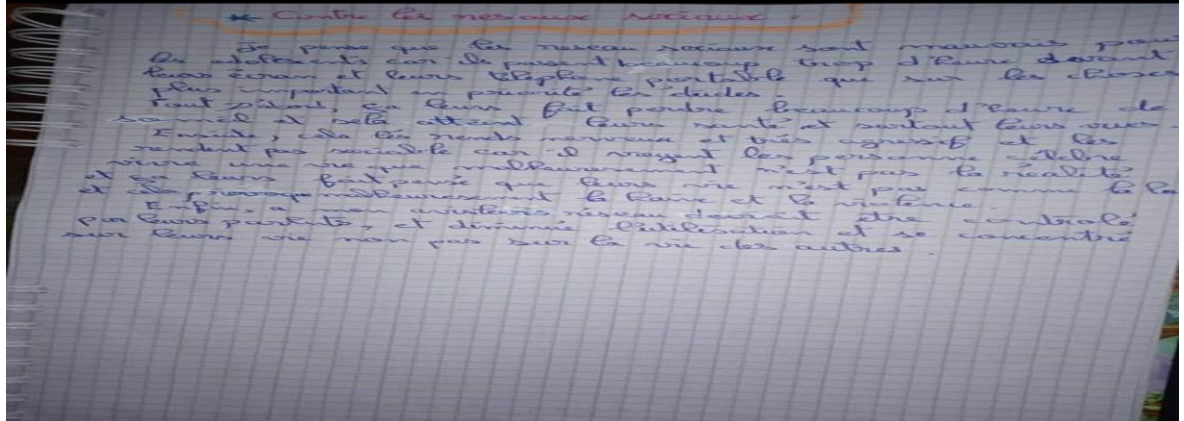 * Contre les reseaux sociaux.
Je pense que les reseau sociaux sont mauvais pour
les adolescents car ils passent beaucoup trop d'heure devant
leurs écran et leurs téléphone portable que sur les choses
plus important en priorité les études.
Tout d'abord, ça leurs fait perdre beaucoup d'heure de
sommeil et sela atteint leurs santé et surtout leurs vues.
Ensuite, cela les rends nerveux et très agressif et les
rendent pas sociable car il voyent les personne célèbre
vivre une vie que malheureusement n'est pas la réalité
et ça leurs fait pensé que leurs vie n'est pas comme la
et cela provoque malheureusement la haine et la violence.
Enfin, a mon avis réseau devrait être controlé
par leurs parents, et diminuie l'utilisation et se concentré
sur leurs vie non pas sur la vie des autres.